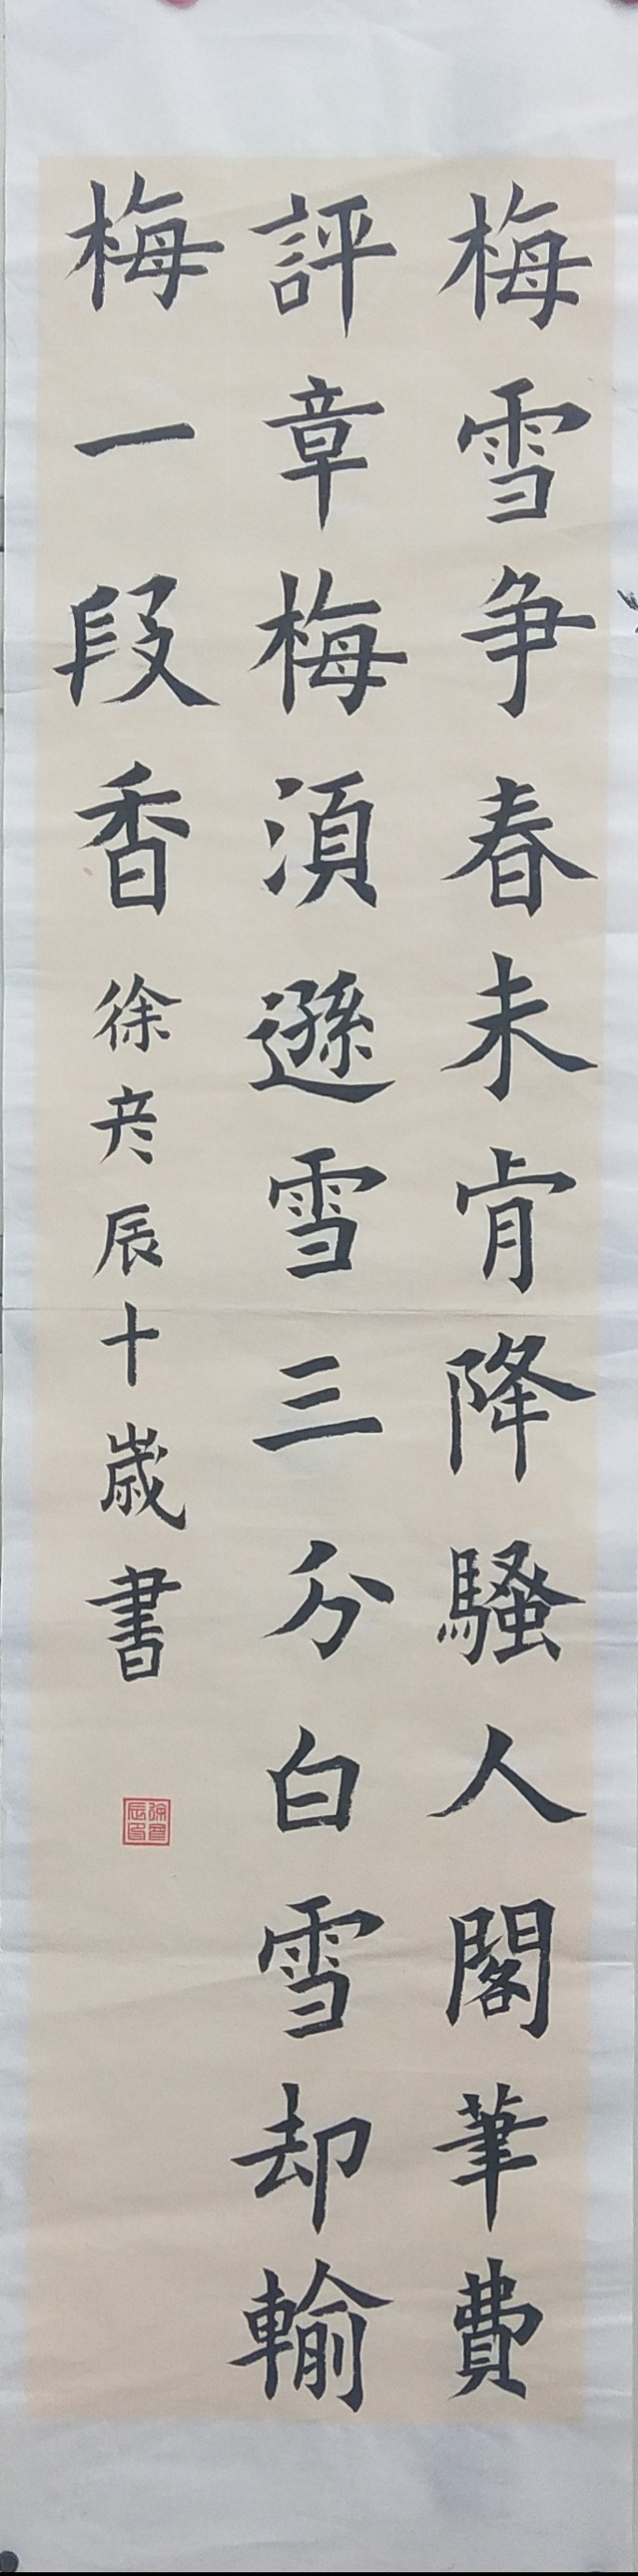 梅雪争春未肯降騷人閣筆費
評章梅湏遜雪三分白雪却輸
梅一段香徐彦辰十歲書
徐彦辰印